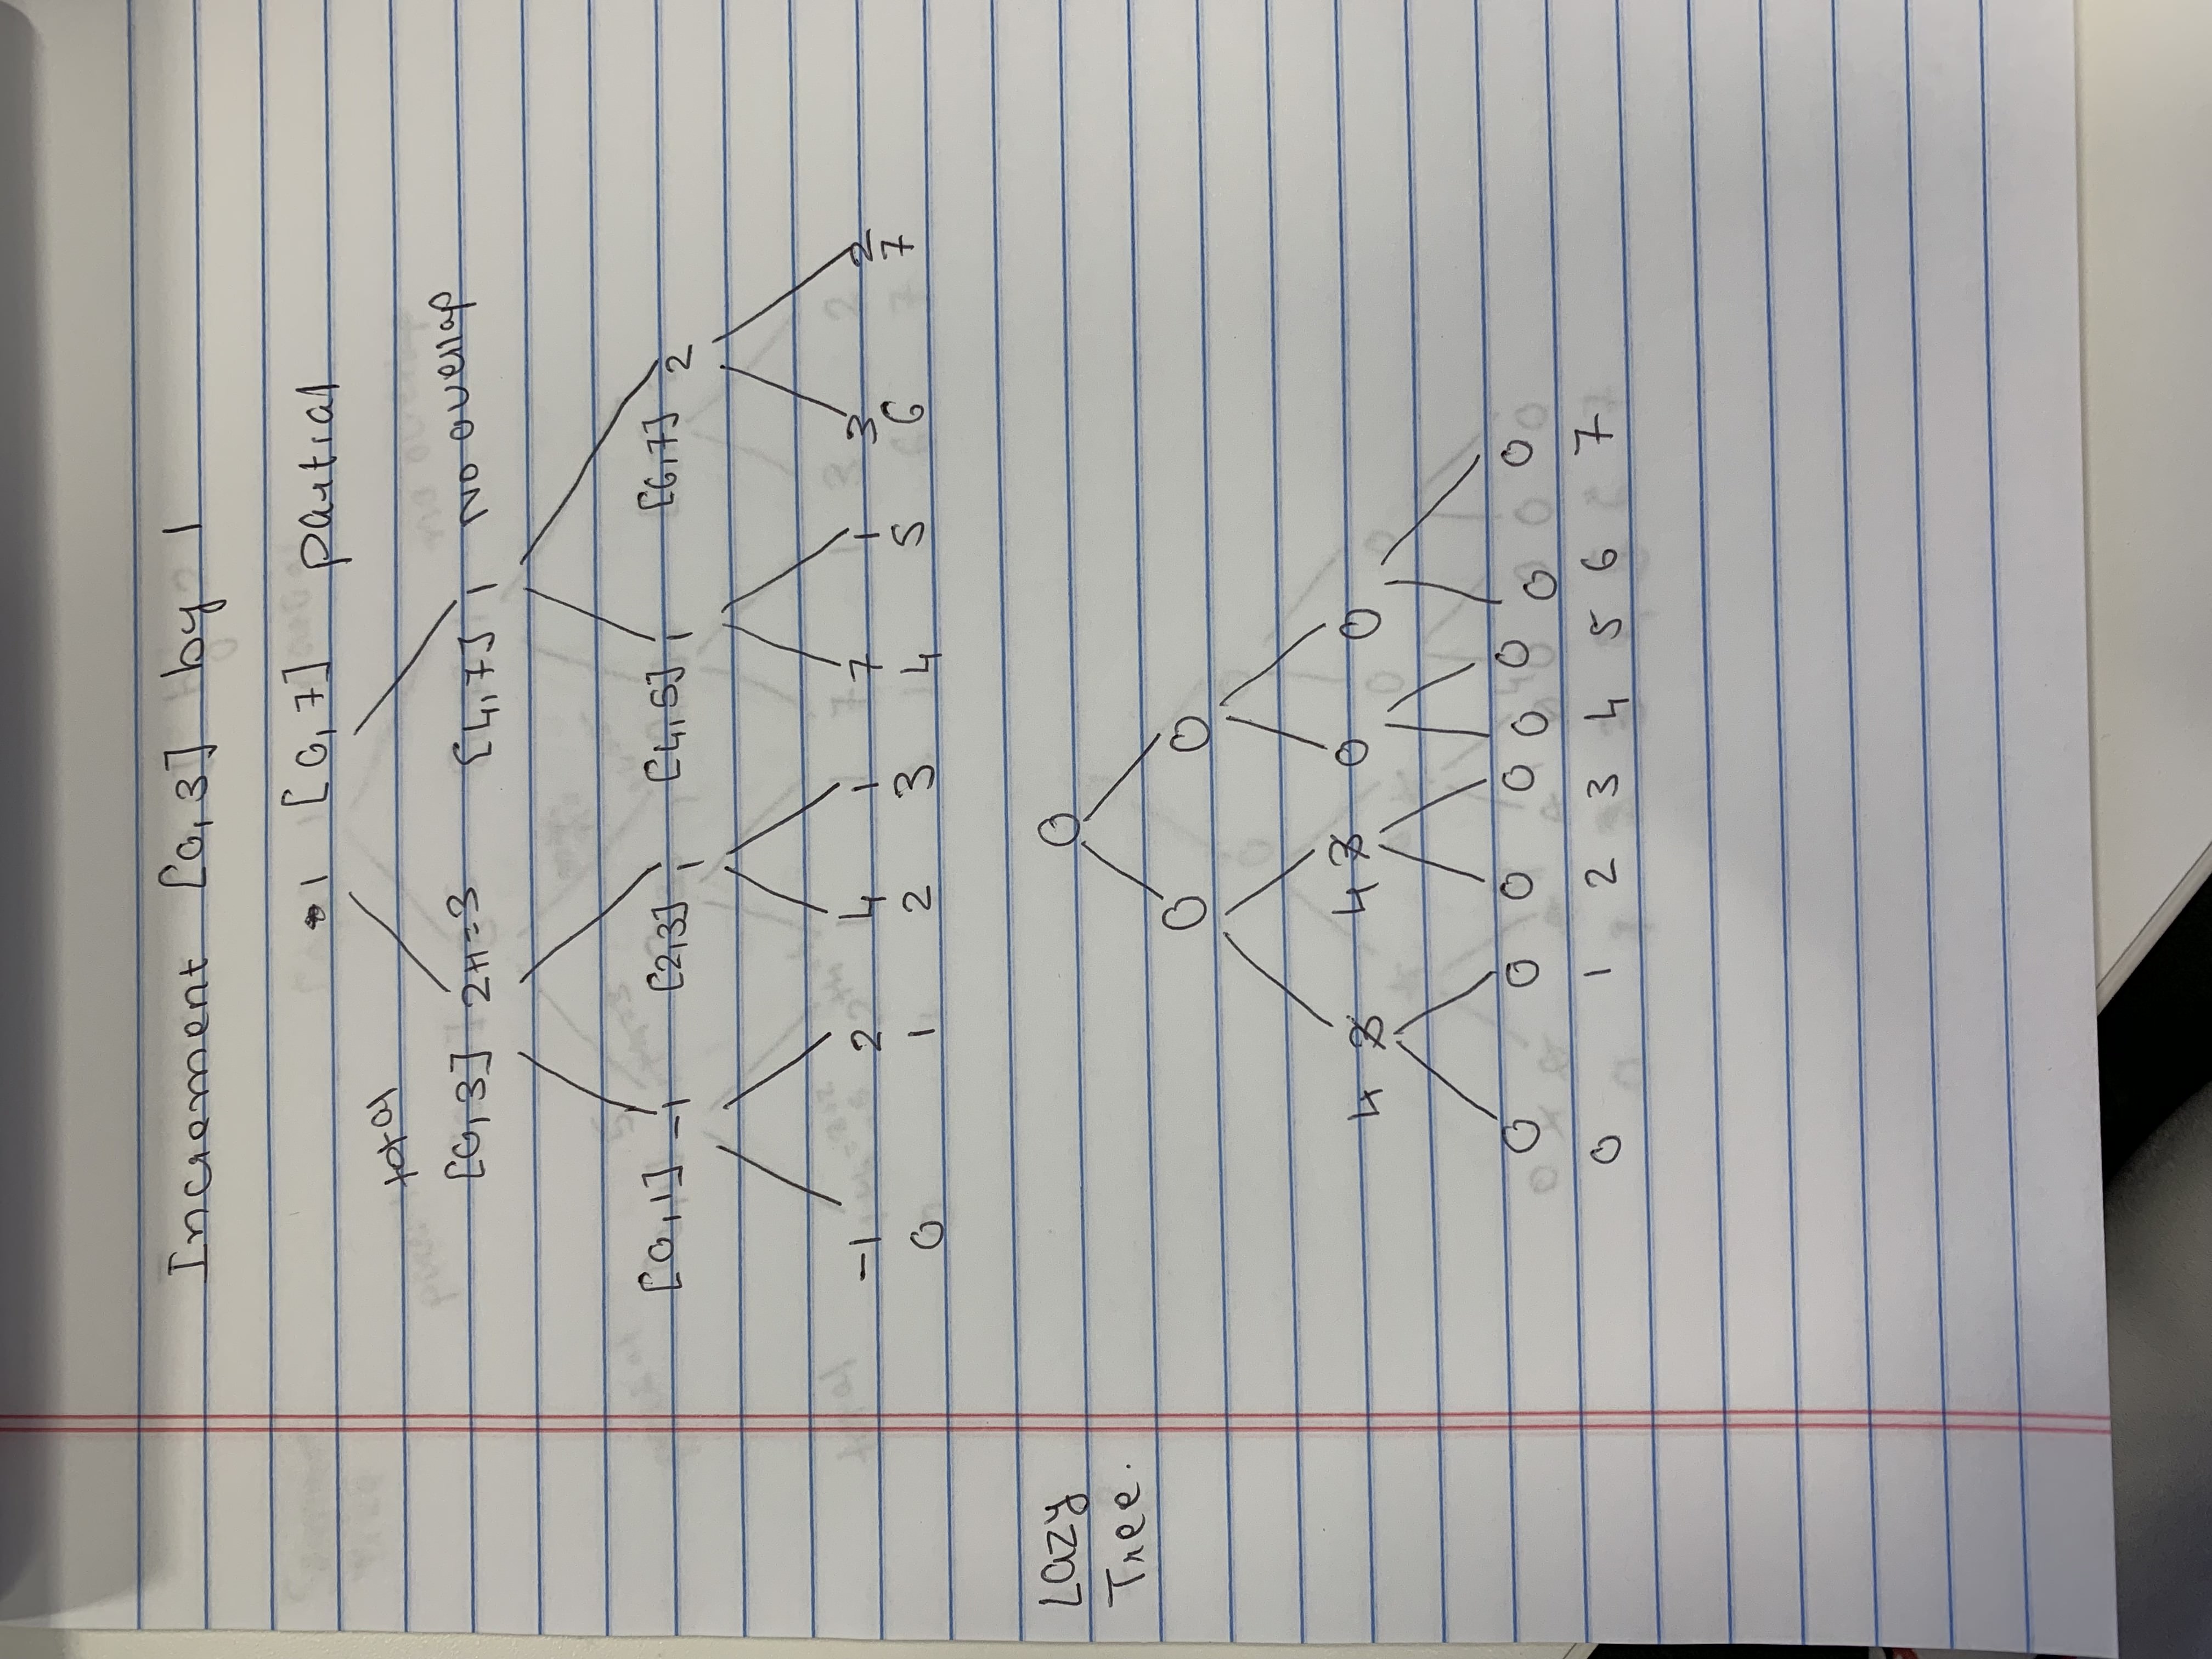 Increment [0,3] by 1
1 [0,7] partial
total
[0,3] 2+1=3 [4,7] 1 No overlap
[0,1] -1 [2,3] 1 [4,5] 1 [6,7] 2
-1 2 4 1 7 1 3 2
0 1 2 3 4 5 6 7
Lazy
Tree.
0
0 0
4 3 4 3 0 0
0 0 0 0 0 0 0 0
0 1 2 3 4 5 6 7